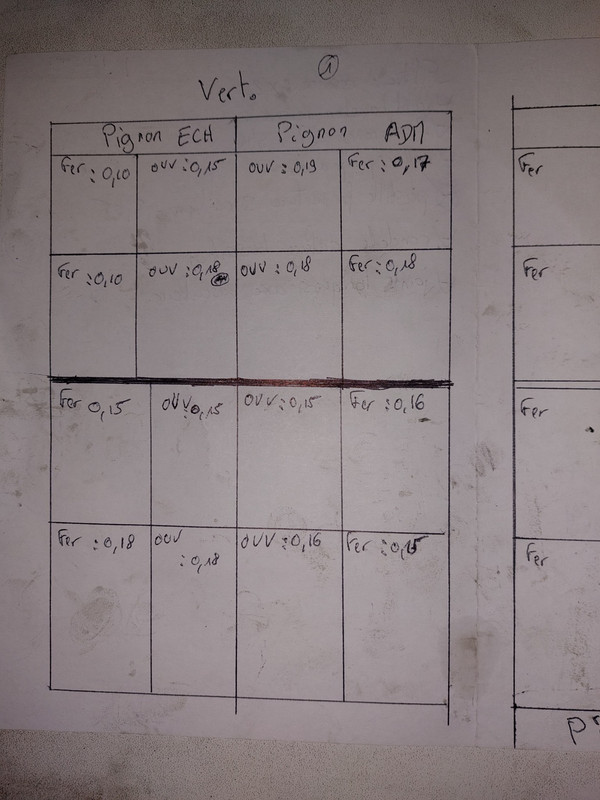 ①
Vert.
Pignon ECH Pignon ADM
Fer : 0,10 OUV : 0,15 OUV : 0,19 Fer : 0,17
Fer
Fer : 0,10 OUV : 0,18 OUV : 0,18 Fer : 0,18
Fer
Fer 0,15 OUV : 0,15 OUV : 0,15 Fer : 0,16
Fer
Fer : 0,18 OUV : 0,18 OUV : 0,16 Fer : 0,15
Fer